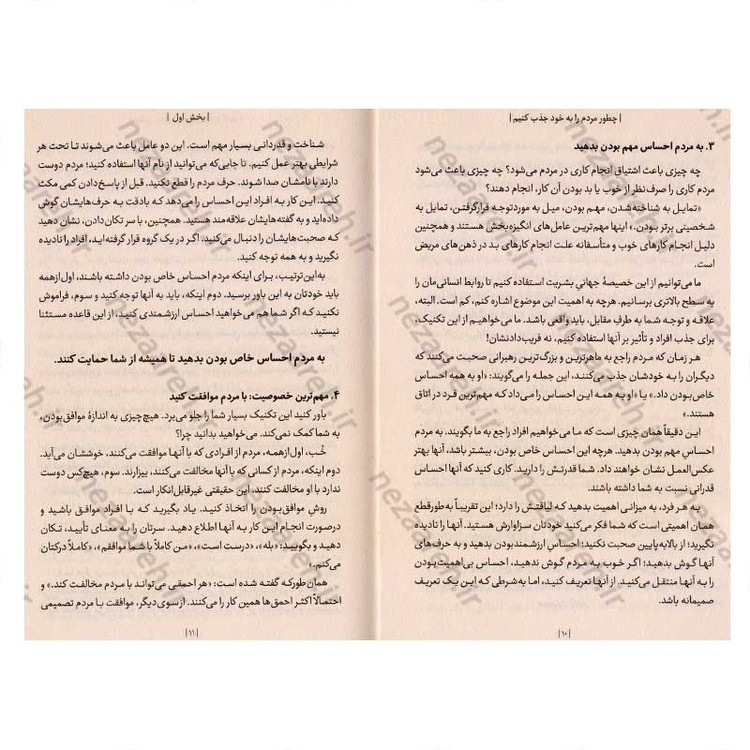 | چطور مردم را به خود جذب کنیم |
۳. به مردم احساس مهم بودن بدهید
چه چیزی باعث اشتیاق انجام کاری در مردم می‌شود؟ چه چیزی باعث می‌شود
مردم کاری را صرف‌نظر از خوب یا بد بودن آن کار، انجام دهند؟
«تمایل به شناخته‌شدن، مهم‌بودن، میل به موردتوجه قرارگرفتن، تمایل به
شخصیتی برتر بودن.» اینها مهم‌ترین عامل‌های انگیزه‌بخش هستند و همچنین
دلیل انجام کارهای خوب و متأسفانه علت انجام کارهای بد در ذهن‌های مریض
است.
ما می‌توانیم از این خصیصهٔ جهانیِ بشریت استفاده کنیم تا روابط انسانی‌مان را
به سطح بالاتری برسانیم. هرچه به اهمیت این موضوع اشاره کنم، کم است. البته،
علاقه و توجه شما به طرفِ مقابل، باید واقعی باشد. ما می‌خواهیم از این تکنیک،
برای جذب افراد و تأثیر بر آنها استفاده کنیم، نه فریب‌دادنشان!
هر زمان که مردم راجع به ماهرترین و بزرگ‌ترین رهبرانی صحبت می‌کنند که
دیگران را به خودشان جذب می‌کنند، این جمله را می‌گویند: «او به همه احساس
خاص‌بودن داد.» یا «او به همه این احساس را می‌داد که مهم‌ترین فرد در اتاق
هستند.»
این دقیقاً همان چیزی است که ما می‌خواهیم افراد راجع به ما بگویند. به مردم
احساس مهم بودن بدهید. هرچه این احساس خاص بودن، بیشتر باشد، آنها بهتر
عکس‌العمل نشان خواهند داد. شما قدرتش را دارید. کاری کنید که آنها احساس
قدرانی نسبت به شما داشته باشند.
به هر فرد، به میزانی اهمیت بدهید که لیاقتش را دارد؛ این تقریباً به‌طورقطع
همان اهمیتی است که شما فکر می‌کنید خودتان سزاوارش هستید. آنها را نادیده
نگیرید؛ از بالابه‌پایین صحبت نکنید؛ احساس ارزشمندبودن بدهید و به حرف‌های
آنها گوش بدهید؛ اگر خوب به مردم گوش ندهید، احساس بی‌اهمیت‌بودن
را به آنها منتقل می‌کنید. از آنها تعریف کنید، اما به‌شرطی که این یک تعریف
صمیمانه باشد.
|۱۰|
| بخش اول |
شناخت و قدردانی بسیار مهم است. این دو عامل باعث می‌شوند تا تحت هر
شرایطی بهتر عمل کنیم. تا جایی‌که می‌توانید از نام آنها استفاده کنید؛ مردم دوست
دارند با نامشان صدا شوند. حرف مردم را قطع نکنید. قبل از پاسخ‌دادن کمی مکث
کنید. این کار به افراد این احساس را می‌دهد که بادقت به حرف‌هایشان گوش
داده‌اید و به گفته‌هایشان علاقه‌مند هستید. همچنین، با سر تکان‌دادن، نشان دهید
که صحبت‌هایشان را دنبال می‌کنید. اگر در یک گروه قرار گرفته‌اید، افراد را نادیده
نگیرید و به همه توجه کنید.
به‌این‌ترتیب، برای اینکه مردم احساس خاص بودن داشته باشند، اول‌ازهمه
باید خودتان به این باور برسید. دوم اینکه، باید به آنها توجه کنید و سوم، فراموش
نکنید که اگر شما هم می‌خواهید احساس ارزشمندی کنید، از این قاعده مستثنا
نیستید.
به مردم احساس خاص بودن بدهید تا همیشه از شما حمایت کنند.
۴. مهم‌ترین خصوصیت: با مردم موافقت کنید
باور کنید این تکنیک بسیار شما را جلو می‌برد. هیچ‌چیزی به اندازهٔ موافق‌بودن،
به شما کمک نمی‌کند. می‌خواهید بدانید چرا؟
خُب، اول‌ازهمه، مردم از افرادی که با آنها موافقت می‌کنند، خوششان می‌آید.
دوم اینکه، مردم از کسانی که با آنها مخالفت می‌کنند، بیزارند. سوم، هیچ‌کس دوست
ندارد با او مخالفت کنند. این حقیقتی غیرقابل‌انکار است.
روشِ موافق‌بودن را اتخاذ کنید. یاد بگیرید که با افراد موافق باشید و
درصورت انجام این کار به آنها اطلاع دهید. سرتان را به معنای تأیید، تکان
دهید و بگویید: «بله»، «درست است»، «من کاملاً با شما موافقم»، «کاملاً درکتان
می‌کنم.»
همان‌طورکه گفته شده است: «هر احمقی می‌تواند با مردم مخالفت کند.» و
احتمالاً اکثر احمق‌ها همین کار را می‌کنند. ازسوی‌دیگر، موافقت با مردم تصمیمی
|۱۱|
nezaareh.ir